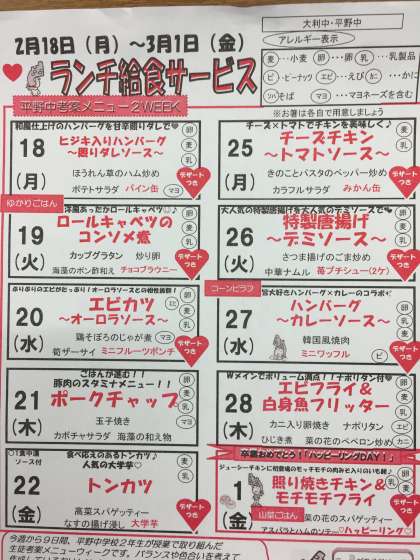 大利中・平野中
アレルギー表示
2月18日（月）～3月1日（金）
ランチ給食サービス
麦…小麦 卵…卵 乳…乳製品
ピ…ピーナッツ エビ…えび カニ…か
ソバ…そば マヨ…マヨネーズを含む
※お箸は各自で用意しましょう
平野中考案メニュー2WEEK
和風仕上げのハンバーグを甘辛照りダレで
18
(月)
ヒジキ入りハンバーグ
～照りダレソース～
ほうれん草のハム炒め
ポテトサラダ パイン缶
卵 麦 乳 マヨ
デザートつき
チーズ×トマトでチキンを美味しく♪
25
(月)
チーズチキン
～トマトソース～
きのことパスタのペッパー炒め
カラフルサラダ みかん缶
卵 麦 乳
デザートつき
ゆかりごはん
洋風あったかロールキャベツ♪
19
(火)
ロールキャベツの
コンソメ煮
カップグラタン 炒り卵
海藻のポン酢和え チョコブラウニー
卵 麦 乳
デザートつき
大人気の特製唐揚げを大人のデミソースで
26
(火)
特製唐揚げ
～デミソース～
さつま揚げのごま炒め
中華ナムル 苺プチシュー(2ケ)
卵 麦 乳
デザートつき
ぷりぷりのエビがたっぷり！オーロラソースとの相性抜群！
20
(水)
エビカツ
～オーロラソース～
鶏そぼろのじゃが煮
筍ザーサイ ミニフルーツポンチ
エビ 卵 麦 乳 マヨ
デザートつき
コーンピラフ
皆大好きハンバーグ×カレーのコラボ
27
(水)
ハンバーグ
～カレーソース～
韓国風焼肉
ミニワッフル
卵 麦 乳 ピ
デザートつき
ごはんが進む！！
豚肉のスタミナメニュー！！
21
(木)
ポークチャップ
玉子焼き
カボチャサラダ 海藻の和え物
卵 麦 乳 マヨ
Wメインでボリューム満点！！ナポリタン付
28
(木)
エビフライ＆
白身魚フリッター
カニ入り卵焼き ナポリタン
ひじき煮 菜の花のペペロン炒め
卵 麦 乳 エビ カニ
ソース付
食べ応えのあるトンカツ♪
人気の大学芋♡
22
(金)
トンカツ
高菜スパゲッティー
なすの揚げ浸し 大学芋
卵 麦 乳
デザートつき
卒業おめでとう！「ハッピーリングDAY！」
ジューシーチキンに初登場のモッチモチの肉みそ入りのいも餅♪
1
(金)
照り焼きチキン＆
モチモチフライ
山菜ごはん
菜の花のスパゲッティー
アスパラとハムのソテー ♡ハッピーリング♡
今週から9日間、平野中学校2年生が授業で取り組んだ
生徒考案メニューウィークです。バランスや色合いを考えて